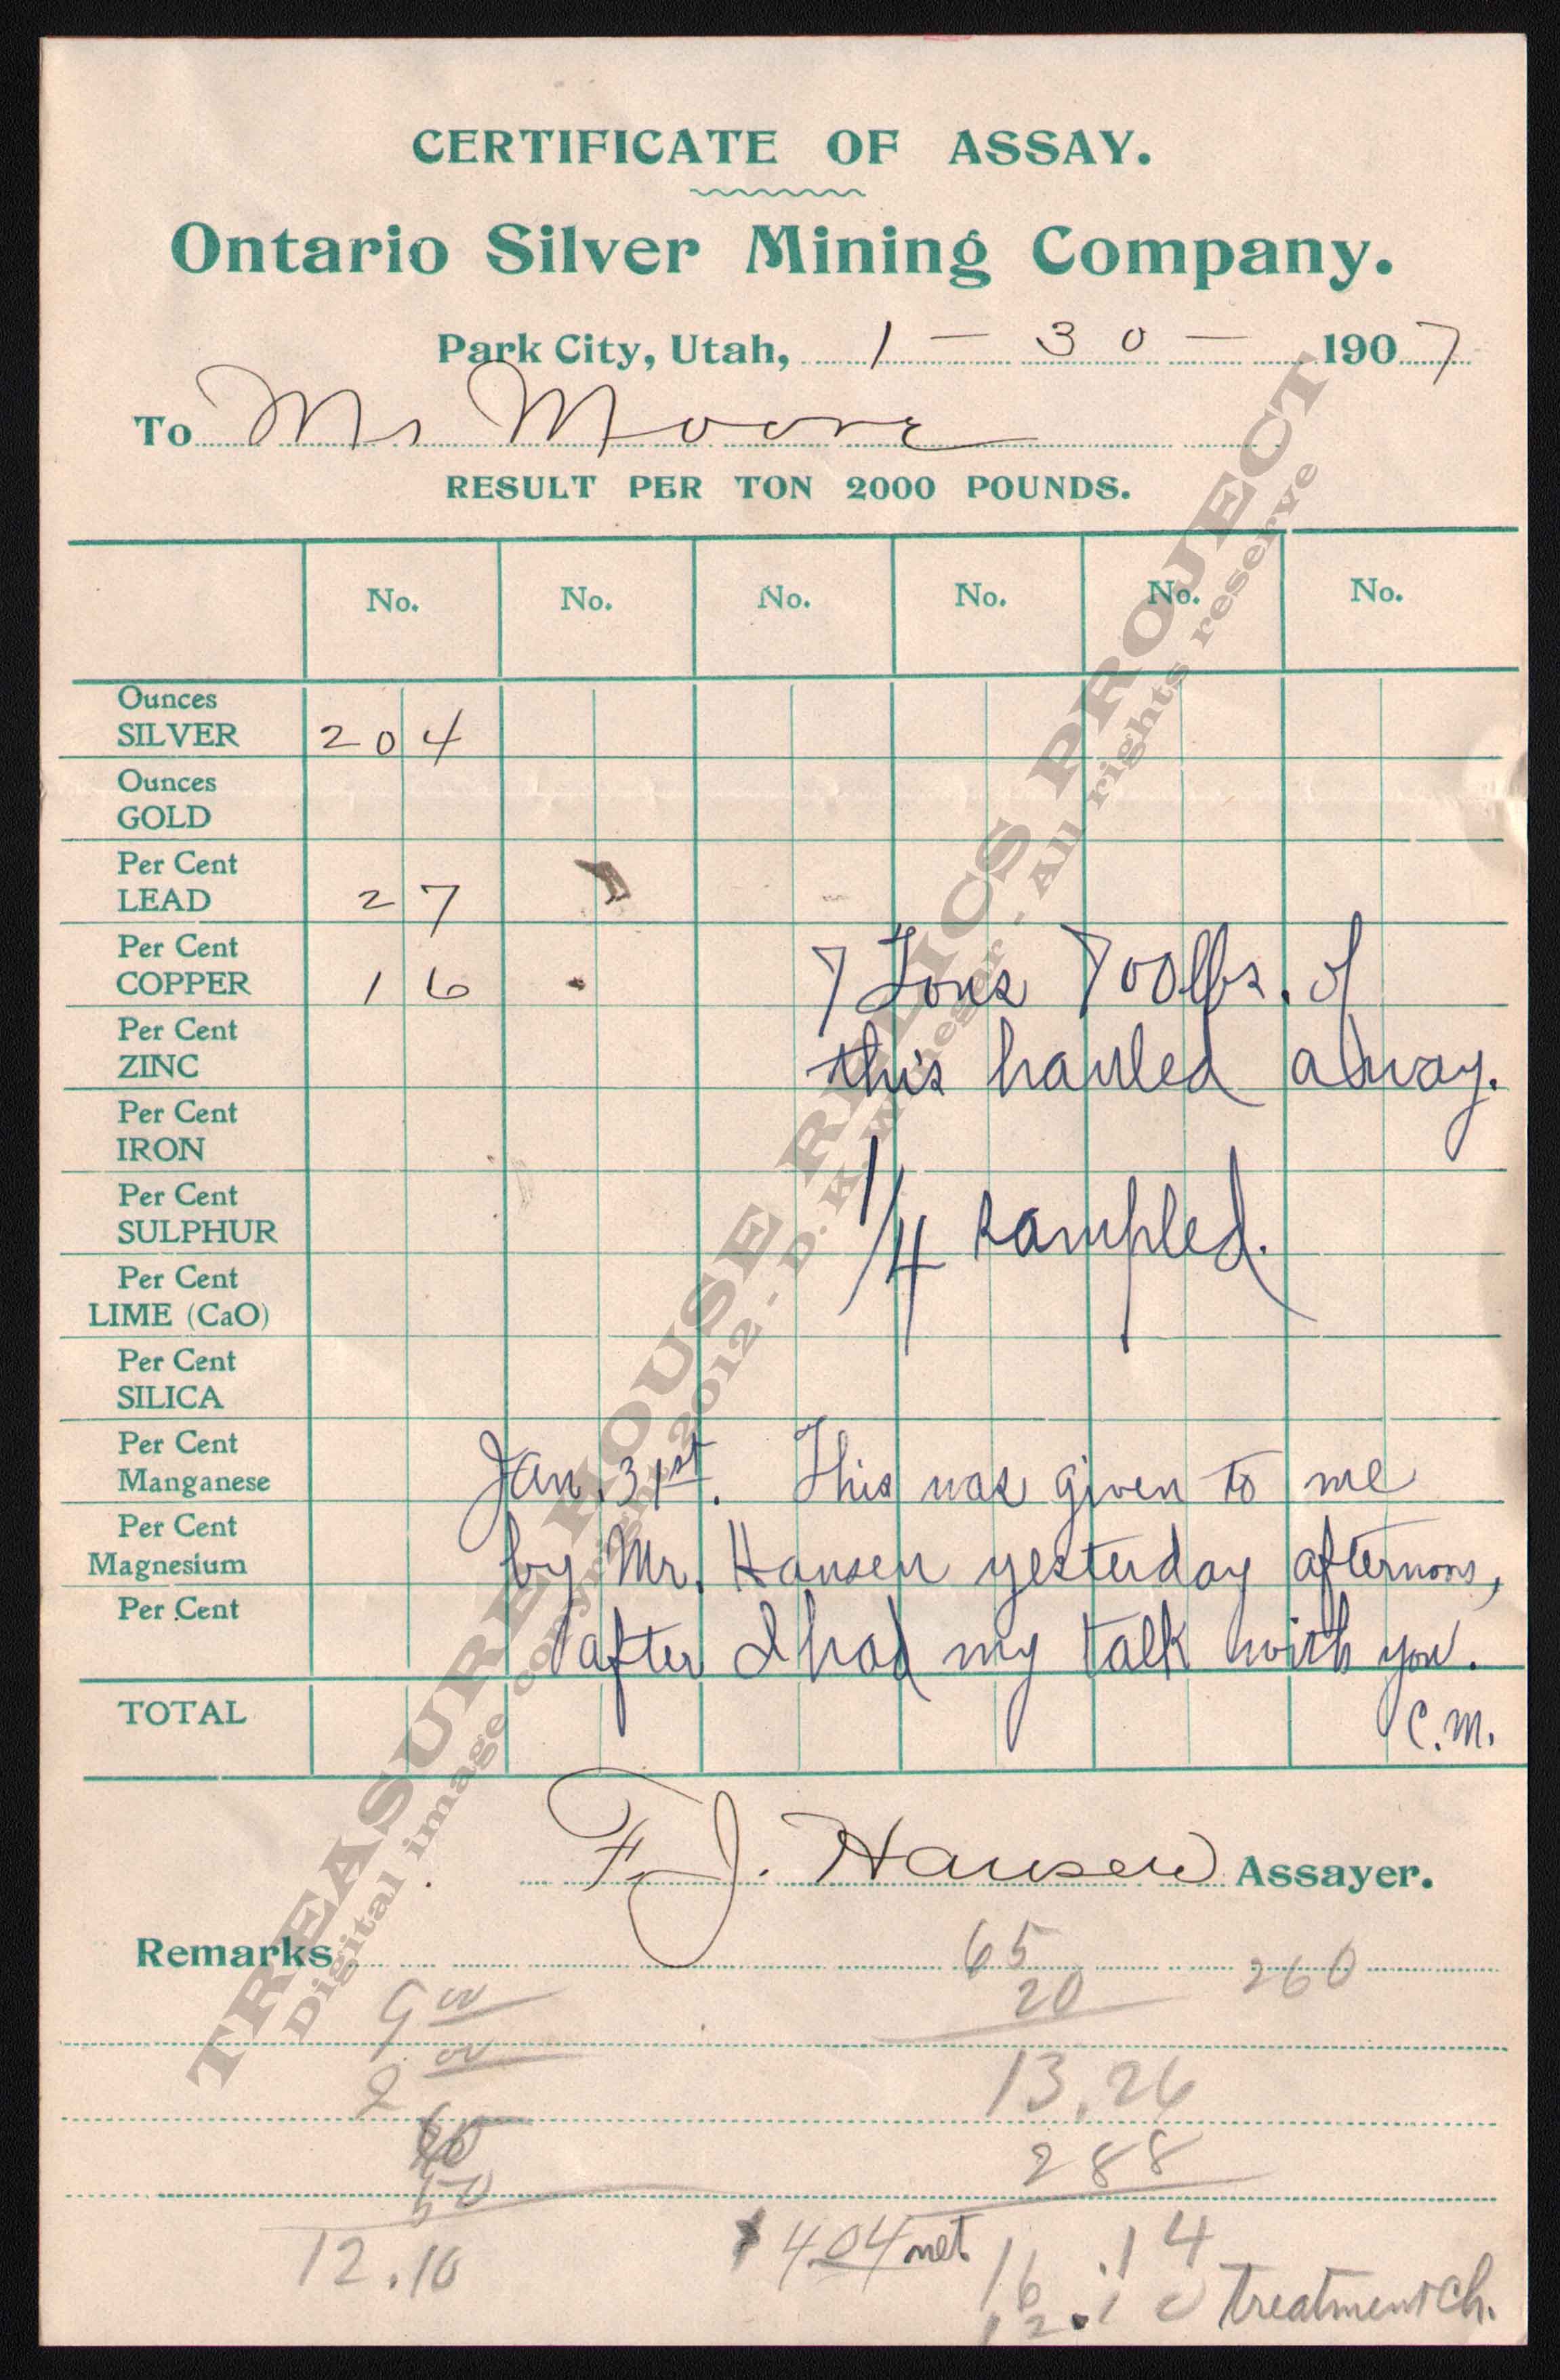 CERTIFICATE OF ASSAY.
Ontario Silver Mining Company.
Park City, Utah, 1 - 30 - 1907
To Mr Moore
RESULT PER TON 2000 POUNDS.
No. No. No. No. No. No.
Ounces
SILVER 20 4
Ounces
GOLD
Per Cent
LEAD 2 7
Per Cent
COPPER 1 6
7 Tons 700 lbs. of
Per Cent
ZINC
this hauled away.
Per Cent
IRON
Per Cent
SULPHUR
1/4 sampled.
Per Cent
LIME (CaO)
Per Cent
SILICA
Per Cent
Manganese
Jan. 31st. This was given to me
Per Cent
Magnesium
by Mr. Hansen yesterday afternoon,
Per Cent
after I had my talk with you.
TOTAL
C.M.
F. J. Hansen Assayer.
Remarks
65 260
9 00 20
2 00 13.26
288
50
12.10 $4.04 net. 16.14
12.10 Treatment Ch.
TREASURE HOUSE RELICS PROJECT
Digital image copyright 2012 - D. K. - All rights reserve